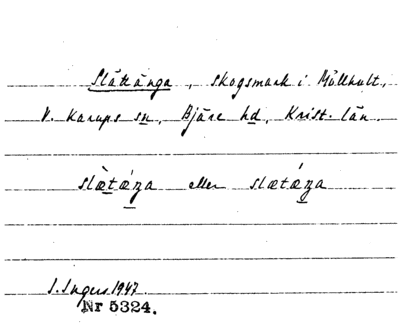 Slättänga, skogsmark i Möllhult,
V. Karups sn, Bjäre hd, Krist. län.
slæ̀tǽŋa eller slætǽŋa
S. Ingers 1947.
Nr 5324.